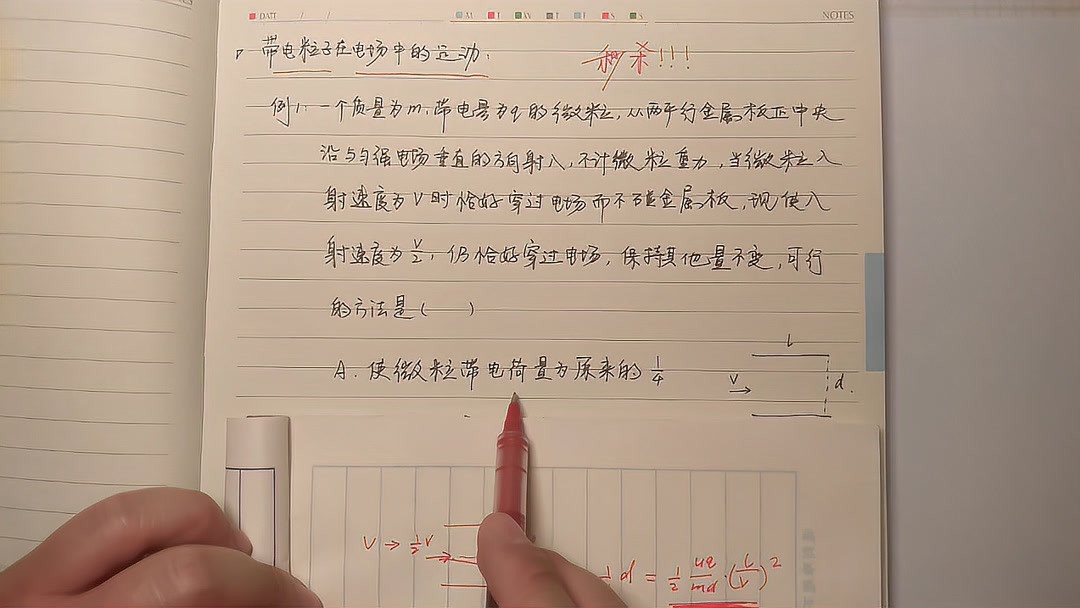 DATE / /
M T W T F S S
NOTES
带电粒子在电场中的运动:
秒杀!!!
例1: 一个质量为m,带电量为q的微粒,从两平行金属板正中央
沿与匀强电场垂直的方向射入,不计微粒重力,当微粒入
射速度为V时恰好穿过电场而不碰金属板,现使入
射速度为V/2,仍恰好穿过电场,保持其他量不变,可行
的方法是( )
A. 使微粒带电荷量为原来的1/4
L
V
d
V → 1/2 V
d = 1/2 uq/md · (L/V)²